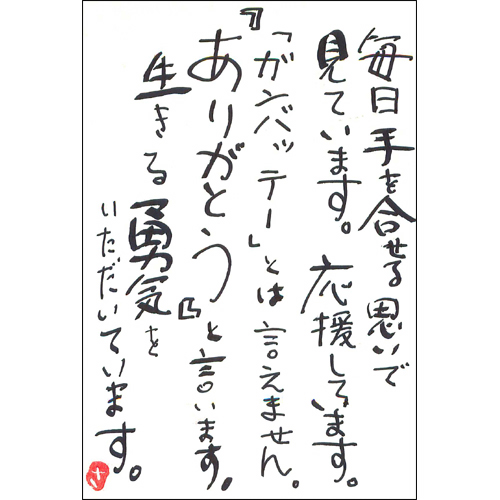 毎日手を合せる思いで
見ています。応援してます。
「ガンバッテー」とは言えません。
『ありがとう』と言います。
生きる勇気を
いただいています。